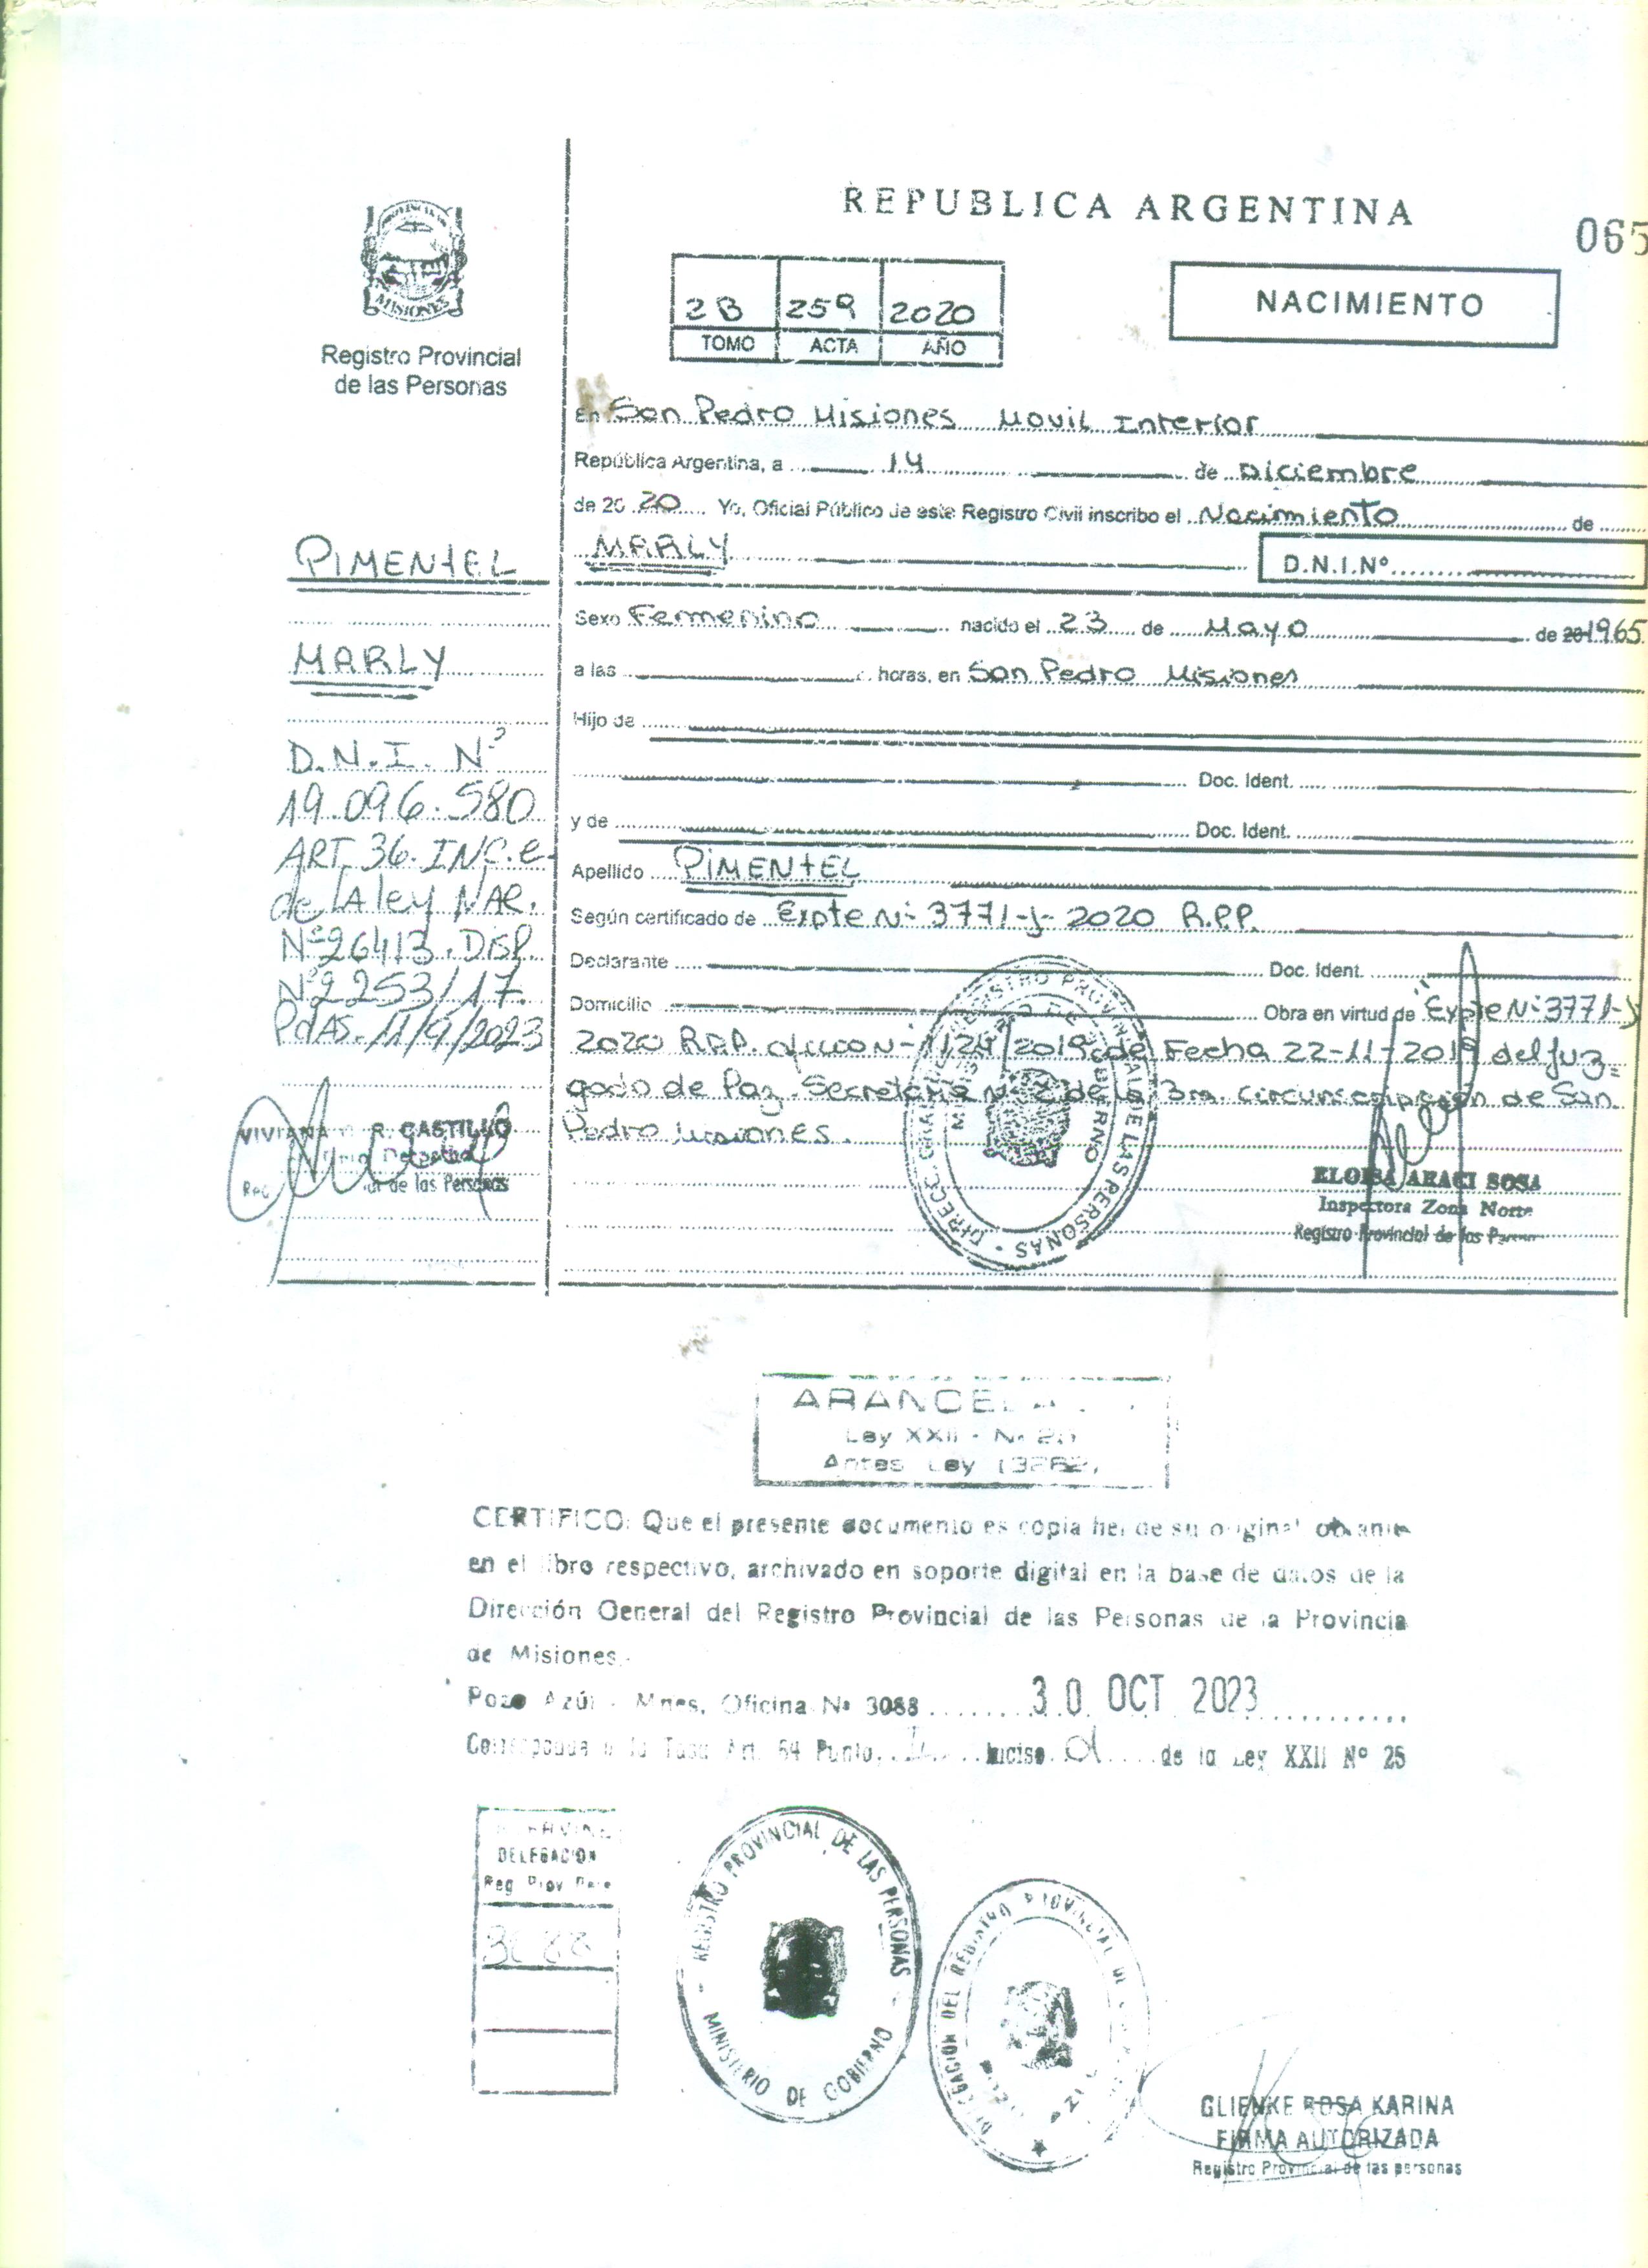 REPUBLICA ARGENTINA
065
PROVINCIA DE
MISIONES
Registro Provincial
de las Personas
2B 259 2020
TOMO ACTA AÑO
NACIMIENTO
En San Pedro Misiones Movil Interior
República Argentina, a 14 de Diciembre
de 20 20 Yo, Oficial Público de este Registro Civil inscribo el Nacimiento de
MARLY
D.N.I.Nº
Sexo Femenino nacido el 23 de Mayo de 20 1965
a las horas, en San Pedro Misiones
Hijo de
Doc. Ident.
y de Doc. Ident.
Apellido PIMENTEL
Según certificado de Expte Nº 3771-J- 2020 R.P.P.
Declarante Doc. Ident.
Domicilio Obra en virtud de Expte Nº 3771-J
2020 R.P.P. oficio Nº 1124/2019 de Fecha 22-11-2019 del Juz=
gado de Paz Secretaria Nº 2 de la 3ra. Circunscripción de San
Pedro Misiones.
PIMENTEL
MARLY
D.N.I. Nº
19.096.580
ART. 36. INC.e
de LA ley NAC.
Nº 26413. DISP.
Nº 2253/17.
PdAS. 11/9/2023
VIVIANA R. CASTILLO
de las Personas
DIRECC. GRAL. REGISTRO PROVINCIAL DE LAS PERSONAS
MINISTERIO DE GOBIERNO
ELOISA ARACI SOSA
Inspectora Zona Norte
Registro Provincial de las
ARANCEL
Ley XXII - Nº
Antes Ley
CERTIFICO: Que el presente documento es copia fiel de su original obrante
en el libro respectivo, archivado en soporte digital en la base de datos de la
Dirección General del Registro Provincial de las Personas de la Provincia
de Misiones.-
Pozo Azúl - Mnes, Oficina Nº 3088 30 OCT 2023
Corresponde a la Tasa Art. 64 Punto Inciso d de la Ley XXII Nº 25
DELEGACION
Reg Prov
3088
REGISTRO PROVINCIAL DE LAS PERSONAS
MINISTERIO DE GOBIERNO
DELEGACION DEL REGISTRO PROVINCIAL DE
GLIENKE ROSA KARINA
FIRMA AUTORIZADA
Registro Provincial de las personas